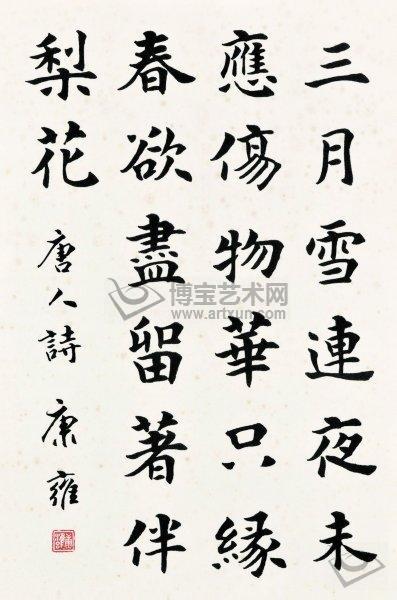 三月雪連夜未
應傷物華只緣
春欲盡留著伴
梨花
唐人詩 康雍
博宝艺术网
www.artxun.com